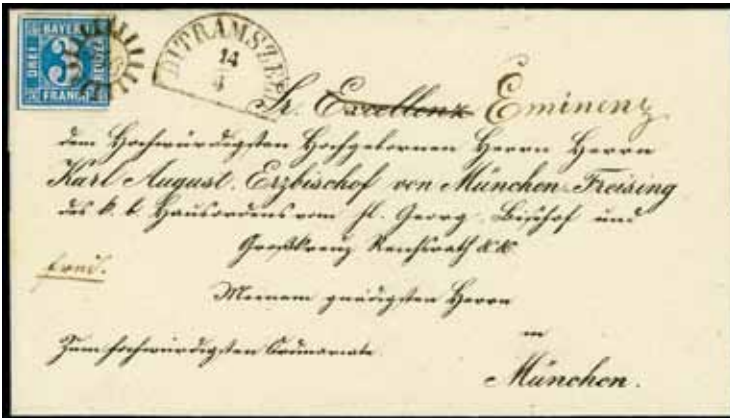 BAYERN
DREI
3
KREUZER
FRANCO
DITRAMSZELL
14
4
Sr. Excellenz Eminenz
dem Hochwürdigsten Hochgebornen Herrn Herrn
Karl August, Erzbischof von München-Freising
des k. b. Hausordens vom hl. Georg Bischof und
Großkreuz Reichsrath &&.
Meinem gnädigsten Herrn
in
Zum hochwürdigsten Ordinariate
München.